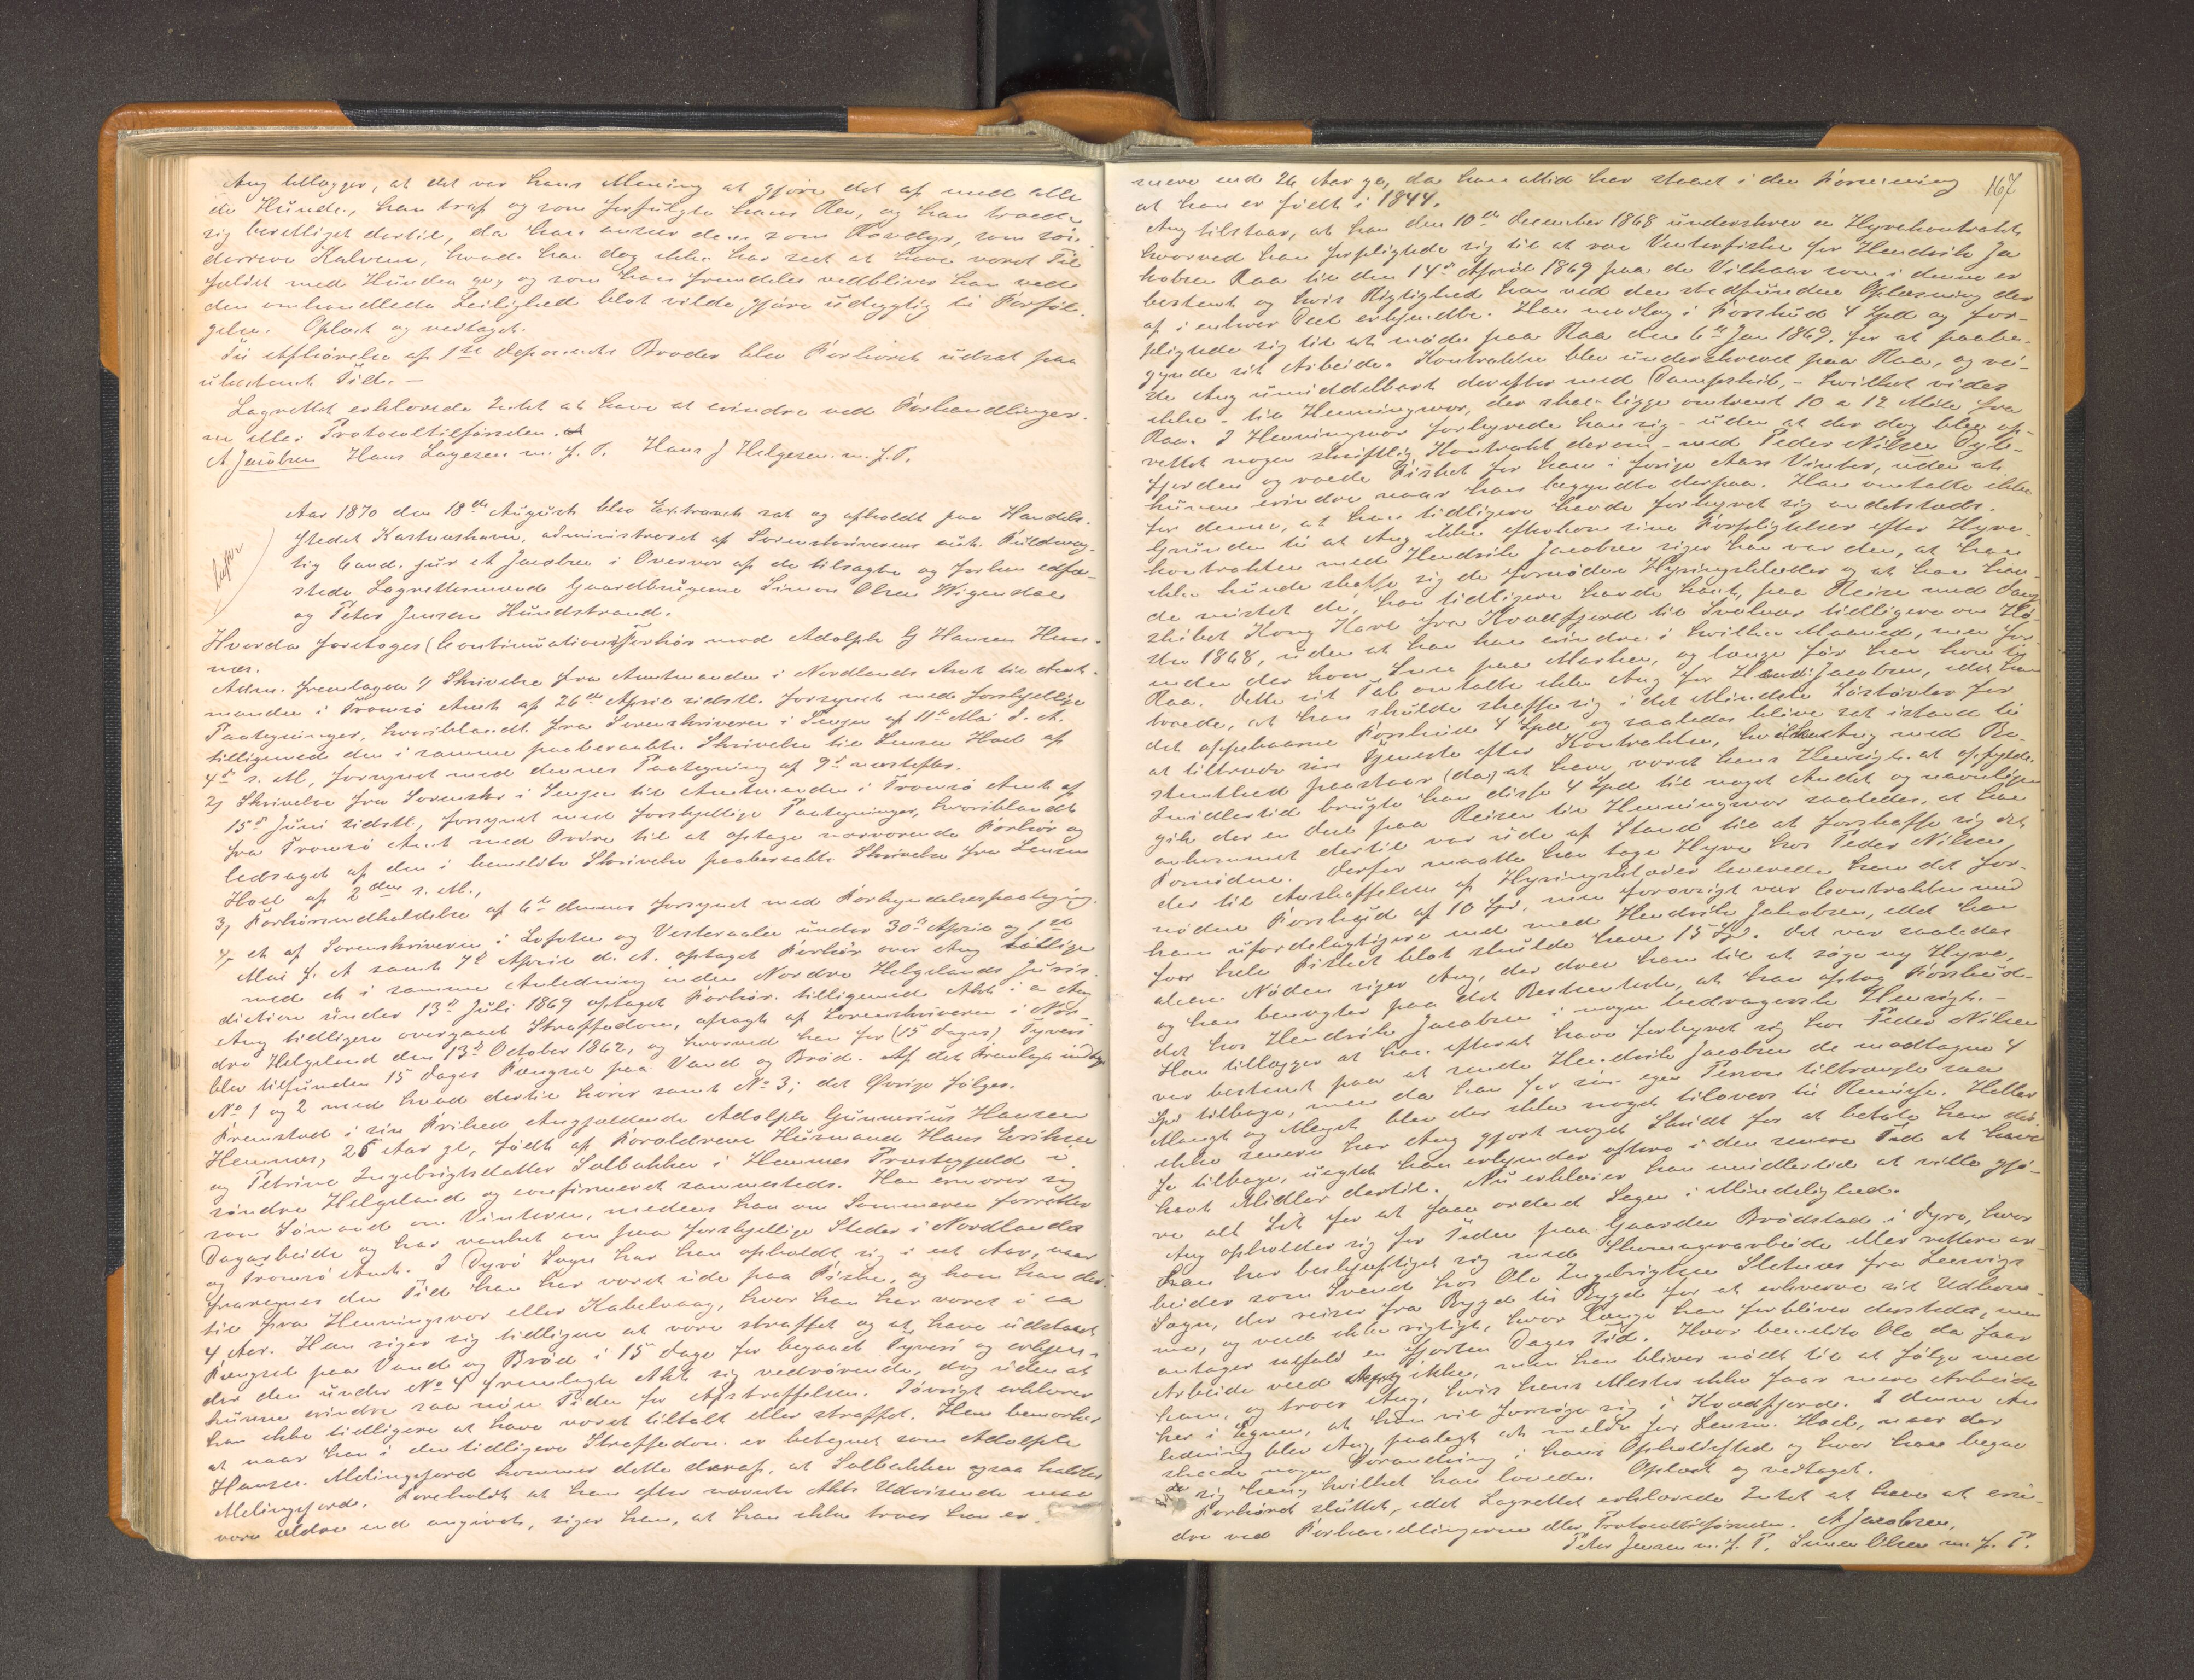 Ang tillægger, at det var hans Mening at gjøre det af med alle
de Hunde, han traf og som forfulgte hans Ren, og han troede
sig berettiget dertil, da han anser dem som Rovdyr, som søn-
derreve Kalvene, hvad han dog ikke har seet at have været Til
fældet med Hunden og som han fremdeles vedbliver han ved
den omhandlede Leilighed blot vilde gjøre udygtig til Forføl-
gelse. Oplæst og vedtaget.
Til Afhørelse af 1ste Deponents Broder blev Forhøret udsat paa
ubestemt Tid. —
Lagrettet erklærede Intet at have at erindre ved Forhandlinger-
ne eller Protocoltilførselen.
A Jacobsen Hans Lagesen m. f. P. Hans J Helgesen m. f. P.
Aar 1870 den 18de August blev Extraret sat og afholdt paa Handels-
stedet Kastneshavn, administreret af Sorenskriverens aut. Fuldmæg-
tig Cand. jur A Jacobsen i Overvær af de tilsagte og forhen edfæ-
stede Lagrettesmænd Gaardbrugerne Simon Olsen Wigendal
og Peter Jensen Hundstrand.
Hvorda foretoges Continuationsforhør mod Adolph G Hansen Hem-
næs.
Adm. fremlagde 1) Skrivelse fra Amtmanden i Nordlands Amt til Amt-
manden i Tromsø Amt af 26de April sidstl. forsynet med forskjellige
Paategninger, hvoriblandt fra Sorenskriveren i Senjen af 11te Mai d. A.
tilligemed den i samme paaberaabte Skrivelse til Lensm Hoel af
4de s. M, forsynet med dennes Paategning af 9d næstefter.
2) Skrivelse fra Sorenskr i Senjen til Amtmanden i Tromsø Amt af
15d Juni sidstl, forsynet med forskjellige Paategninger, hvoriblandt
fra Tromsø Amt med Ordre til at optage nærværende Forhør og
ledsaget af den i bemeldte Skrivelse paaberaabte Skrivelse fra Lensm
Hoel af 2den s. M.,
3) Forhørsindkaldelse af 6te dennes forsynet med Forkyndelsespaategng.
4) et af Sorenskriveren i Lofoten og Vesteraalen under 30te April og 1ste
Mai f. A samt 7d April d. A. optaget Forhør over Ang
med et i samme Anledning inden Nordre Helgelands Juris-
diction under 13d Juli 1869 optaget Forhør tilligemed Akt i en
Ang tidligere overgaaet Straffedom, afsagt af Sorenskriveren i Nor-
dre Helgeland den 13d October 1862, og hvorved han for (15 Dages) Tyveri
blev tilfunden 15 Dages Fængsel paa Vand og Brød. Af det Fremlagte
No 1 og 2 med hvad dertil hører samt No 3; det Øvrige følger.
Fremstod i sin Frihed Angjældende Adolph Gunnerius Hansen
Hemnæs, 26 Aar gl, født af Forældrene Husmand Hans Eriksen
og Petrine Ingebrigtsdatter Solbakken i Hemnes Præstegjeld i
søndre Helgeland og confirmeret sammesteds. Han ernærer sig
som Sømand om Vinteren, medens han om Sommeren forretter
Dagarbeide og har vanket om paa forskjellige Steder i Nordlands
og Tromsø Amt. I Dyrø Sogn har han opholdt sig i eet Aar, naar
fraregnes den Tid han har været ude paa Fiske, og kom han der-
til fra Henningsvær eller Kabelvaag, hvor han har været i ca
4 Aar. Han siger sig tidligere at være straffet og at have udstaaet
Fængsel paa Vand og Brød i 15 Dage for begaaet Tyveri og erkjen-
der den under No 4 fremlagte Akt sig vedrørende, dog uden at
kunne erindre saa nøie Tiden for Afstraffelsen. Iøvrigt erklærer
han ikke tidligere at have været tiltalt eller straffet. Han bemærker
at naar han i den tidligere Straffedom er betegnet som Adolph
Hansen Melingsjord kommer dette deraf, at Solbakken ogsaa kaldes
Melingsjord. Foreholdt at han efter nævnte Akts Udvisende maa
være ældre end angivet, siger han, at han ikke troer han er
167
mere end 26 Aar gl, da han altid har staaet i den Formening
at han er født i 1844.
Ang tilstaar, at han den 10de December 1868 underskrev en Hyrekontrakt
hvorved han forpligtede sig til at roe Vinterfiske for Hendrik Ja
kobsen Raa til den 14d April 1869 paa de Vilkaar som i denne er
bestemt og hvis Rigtighed han ved den stedfundne Oplæsning der
af i enhver Deel erkjendte. Han modtog i Forskud 4 Spd og for-
pligtede sig til at møde paa Raa den 6te Jan 1869, for at paabe-
gynde sit Arbeide. Kontrakten blev underskrevet paa Raa, og rei-
ste Ang umiddelbart derefter med Dampskib, – hvilket vides
ikke – til Henningsvær, der skal ligge omtrent 10 a 12 Mile fra
Raa. I Henningsvær forhyrede han sig – uden at der dog blev op-
rettet nogen skriftlig Kontrakt derom – med Peder Nilsen
fjorden og roede Fisket for ham i forrige Aars Vinter, uden at
kunne erindre naar han begyndte derpaa. Han omtalte ikke
for denne, at han tidligere havde forhyret sig andetsteds.
Grunden til at Ang ikke efterkom sine Forpligtelser efter Hyre-
kontrakten med Hendrik Jacobsen siger han var den, at han
ikke kunde skaffe sig de fornødne Hyringsklæder og at han hav-
de mistet de, han tidligere havde havt, paa Reise med Damp
skibet Kong Karl fra Kvedfjord til Svolvær tidligere om Hø-
sten 1868, uden at han kan erindre i hvilken Maaned, men for-
inden der kom Snee paa Marken, og længe før han kom til
Raa. Dette sit Tab omtalte ikke Ang for Hend: Jacobsen, idet han
troede, at han skulde skaffe sig i det Mindste Søstøvler for
det oppebaarne Forskud 4 Spd og saaledes blive sat istand til
at tiltræde sin Tjeneste efter Kontrakten, hvilket Ang med Be-
stemthed paastaar (da) at have været hans Hensigt at opfylde.
Imidlertid brugte han disse 4 Spd til noget Andet og navnligen
gik der en Deel paa Reisen til Henningsvær saaledes, at han
ankommet dertil var ude af Stand til at forskaffe sig det
Fornødne. Derfor maatte han tage Hyre hos Peder Nilsen
der til Anskaffelsen af Hyringsklæder leverede ham det for-
nødne Forskud af 10 Spd, men forøvrigt var Contrakten med
ham ufordelagtigere end med Hendrik Jakobsen, idet han
for hele Fisket blot skulde have 15 Spd. Det var saaledes
alene Nøden siger Ang, der drev ham til at søge ny Hyre,
og han benægter paa det Bestemteste, at han optog Forskud-
det hos Hendrik Jacobsen i nogen bedragersk Hensigt. –
Han tillægger at han efterat have forhyret sig hos Peder Nilsen
var bestemt paa at sende Hendrik Jacobsen de modtagne 4
Spd tilbage, men da han for sin egen Person tiltrængte saa
Mangt og Meget, blev der ikke noget tilovers til Remisse. Heller
ikke senere har Ang gjort noget Skridt for at betale ham dis-
se tilbage, uagtet han erkjender oftere i den senere Tid at have
havt Midler dertil. Nu erklærer han imidlertid at ville gjø-
re alt Sit for at faae ordnet Sagen i Mindelighed.
Ang opholder sig for Tiden paa Gaarden Brødstad i Dyrø, hvor
han har beskjæftiget sig med Skomagerarbeide eller rettere ar-
beider som Svend hos Ole Ingebrigtsen Sletnes fra Leervigs
Sogn, der reiser fra Bygd til Bygd for at erhverve sit Udkom-
me, og veed ikke rigtigt, hvor længe han forbliver dersteds, men
antager ialfald en fjorten Dages Tid. Hvor bemeldte Ole da faar
Arbeide veed Ang ikke, men han bliver nødt til at følge med
ham, og troer Ang, hvis hans Mester ikke faar mere Arbeide
her i Egnen, at han vil forsøge sig i Kvædfjord. I denne An
ledning blev Ang paalagt at melde for Lensm. Hoel, naar der
skeede nogen Forandring i hans Opholdssted og hvor han begav
sig hen, hvilket han lovede. Oplæst og vedtaget.
Forhøret sluttet, idet Lagrettet erklærede Intet at have at erin-
dre ved Forhandlingerne eller Protocoltilførselen. A Jacobsen,
Peter Jensen m. f. P. Simon Olsen m. f. P.